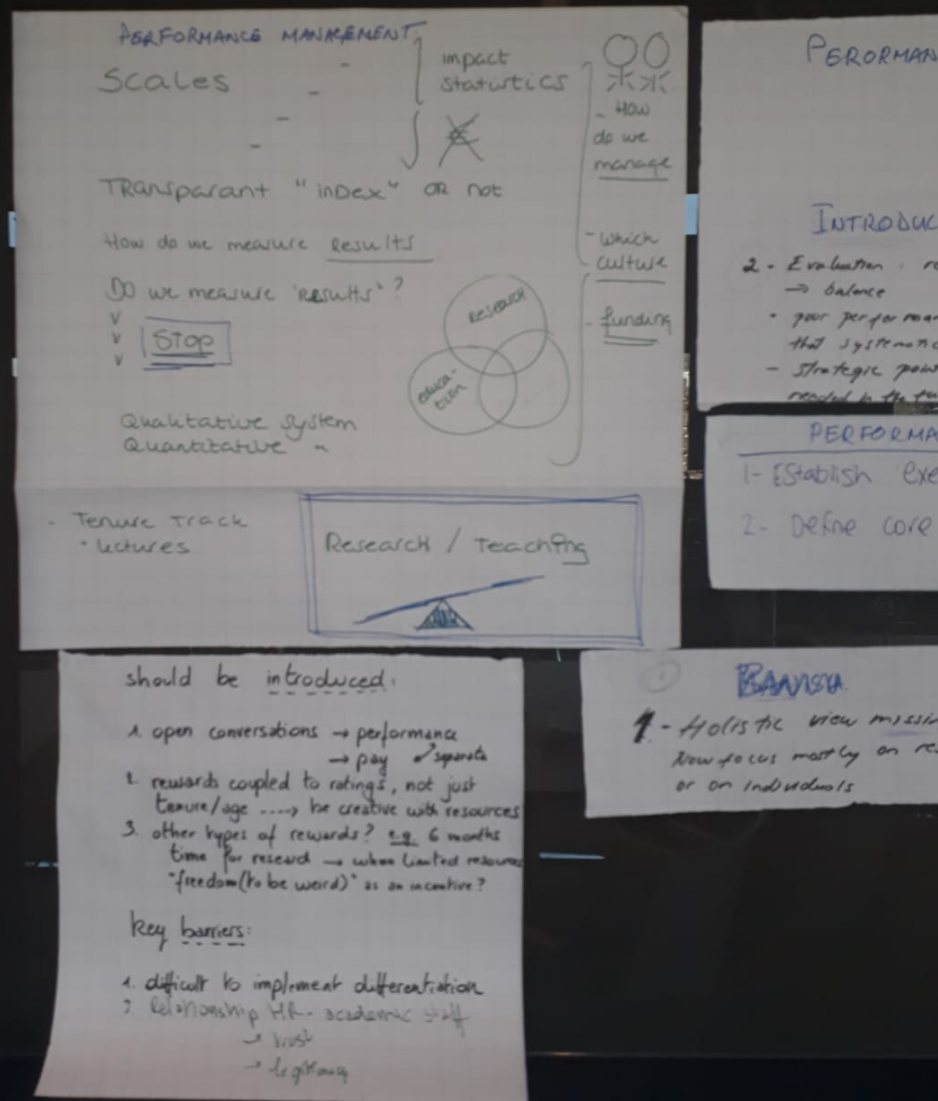 PERFORMANCE MANAGEMENT
Scales
impact
statistics
TRansparant "inDex" OR not
How do we measure Results
Do we measure 'Results'?
STOP
Qualitative system
Quantitative "
- How
do we
manage
- which
culture
- funding
RESEARCH
educa-
tion
- Tenure Track
• lectures
Research / Teaching
should be introduced:
1. open conversations → performance
→ pay separate
2. rewards coupled to ratings, not just
tenure/age ....→ be creative with resources
3. other types of rewards? e.g. 6 months
time for research → when limited resources
"freedom (to be weird)" as an incentive?
key barriers:
1. difficult to implement differentiation
2. Relationship HR - academic staff
→ trust
→ legitimacy
PERORMAN
INTRODUC
2 - Evaluation
→ balance
that systematic
- strategic
PERFORMA
1- Establish exe
2- Define core
1 - Holistic view missin
Now focus mostly on res
or on individuals